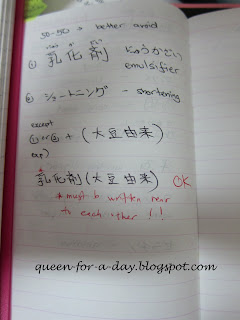 50-50 → better avoid
① 乳化剤 にゅうかざい
emulsifier
② ショートニング - shortening
except
① or ② + (大豆由来)
ex)
乳化剤 (大豆由来) OK
* must be written near
to each other !!
queen-for-a-day.blogspot.com